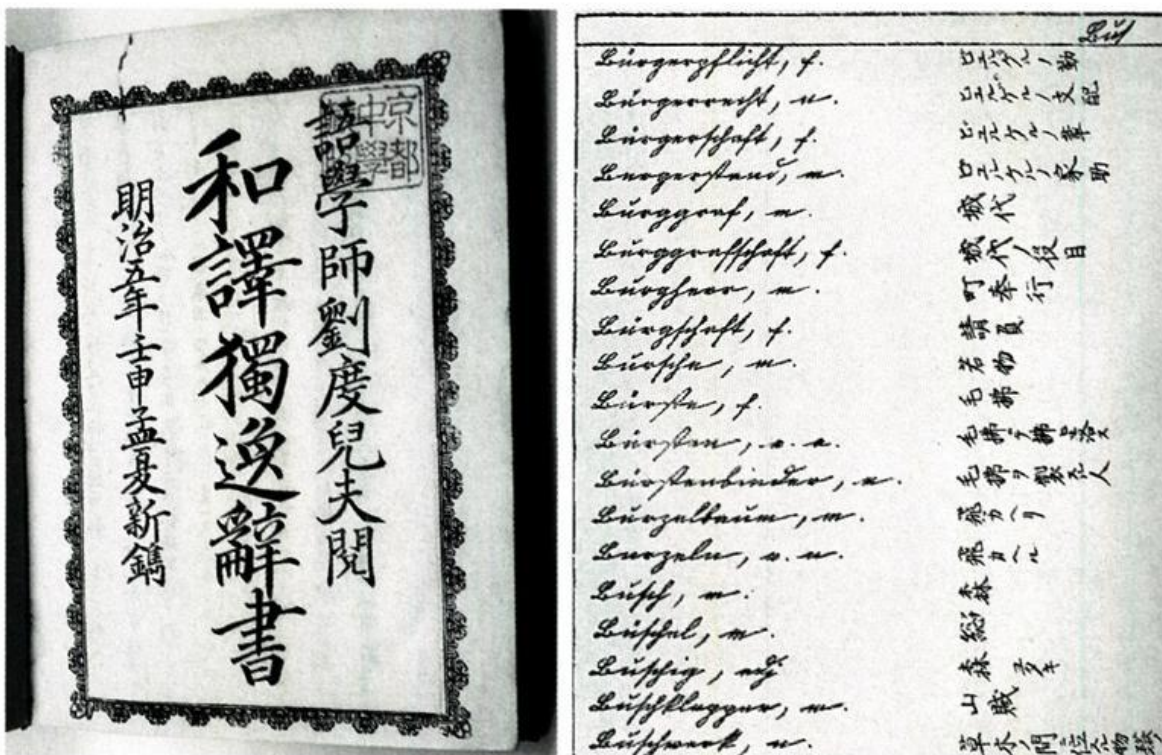 京都
中學
語學師劉度兒夫閲
和譯獨逸辭書
明治五年壬申孟夏新鐫
Bürgerpflicht, f. ノ勤
Bürgerrecht, n. ノ支配
Bürgerschaft, f.
Bürgerstand, m.
Burggraf, m. 城代
Burggrafschaft, f. 城代ノ役目
Burgherr, m. 町奉行
Bürgschaft, f. 請負
Bursche, m. 若物
Bürste, f. 毛拂
Bürsten, v. a. 毛拂ヲ拂
Bürstenbinder, m. 毛拂ヲ製スル人
Burzelbaum, m. 飛カヘリ
Burzeln, v. n. 飛カヘル
Busch, m. 森
Büschel, m. 総
Buschig, adj. 森
Buschklepper, m. 山賊
Buschwerk, n. 草木